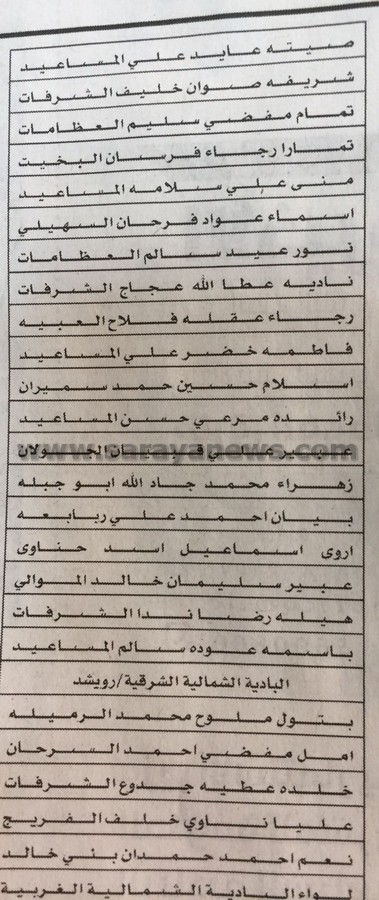 صيته عايد علي المساعيد
شريفه صوان خليف الشرفات
تمام مفضي سليم العظامات
تمارا رجاء فرسان البخيت
منى علي سلامه المساعيد
اسماء عواد فرحان السهيلي
نور عيد سالم العظامات
ناديه عطا الله عجاج الشرفات
رجاء عقله فلاح العبيه
فاطمه خضر علي المساعيد
اسلام حسين حمد سميران
رائده مرعي حسن المساعيد
عبير
www.sarayanews.com
زهراء محمد جاد الله ابو جبله
بيان احمد علي ربابعه
اروى اسماعيل اسد حناوى
عبير سليمان خالد الموالي
هيله رضا ندا الشرفات
باسمه عوده سالم المساعيد
البادية الشمالية الشرقية/رويشد
بتول ملوح محمد الرميله
امل مفضي احمد السرحان
خلده عطيه جدوع الشرفات
عليا ناوي خلف الفريج
نعم احمد حمدان بني خالد
لواء البادية الشمالية الغربية